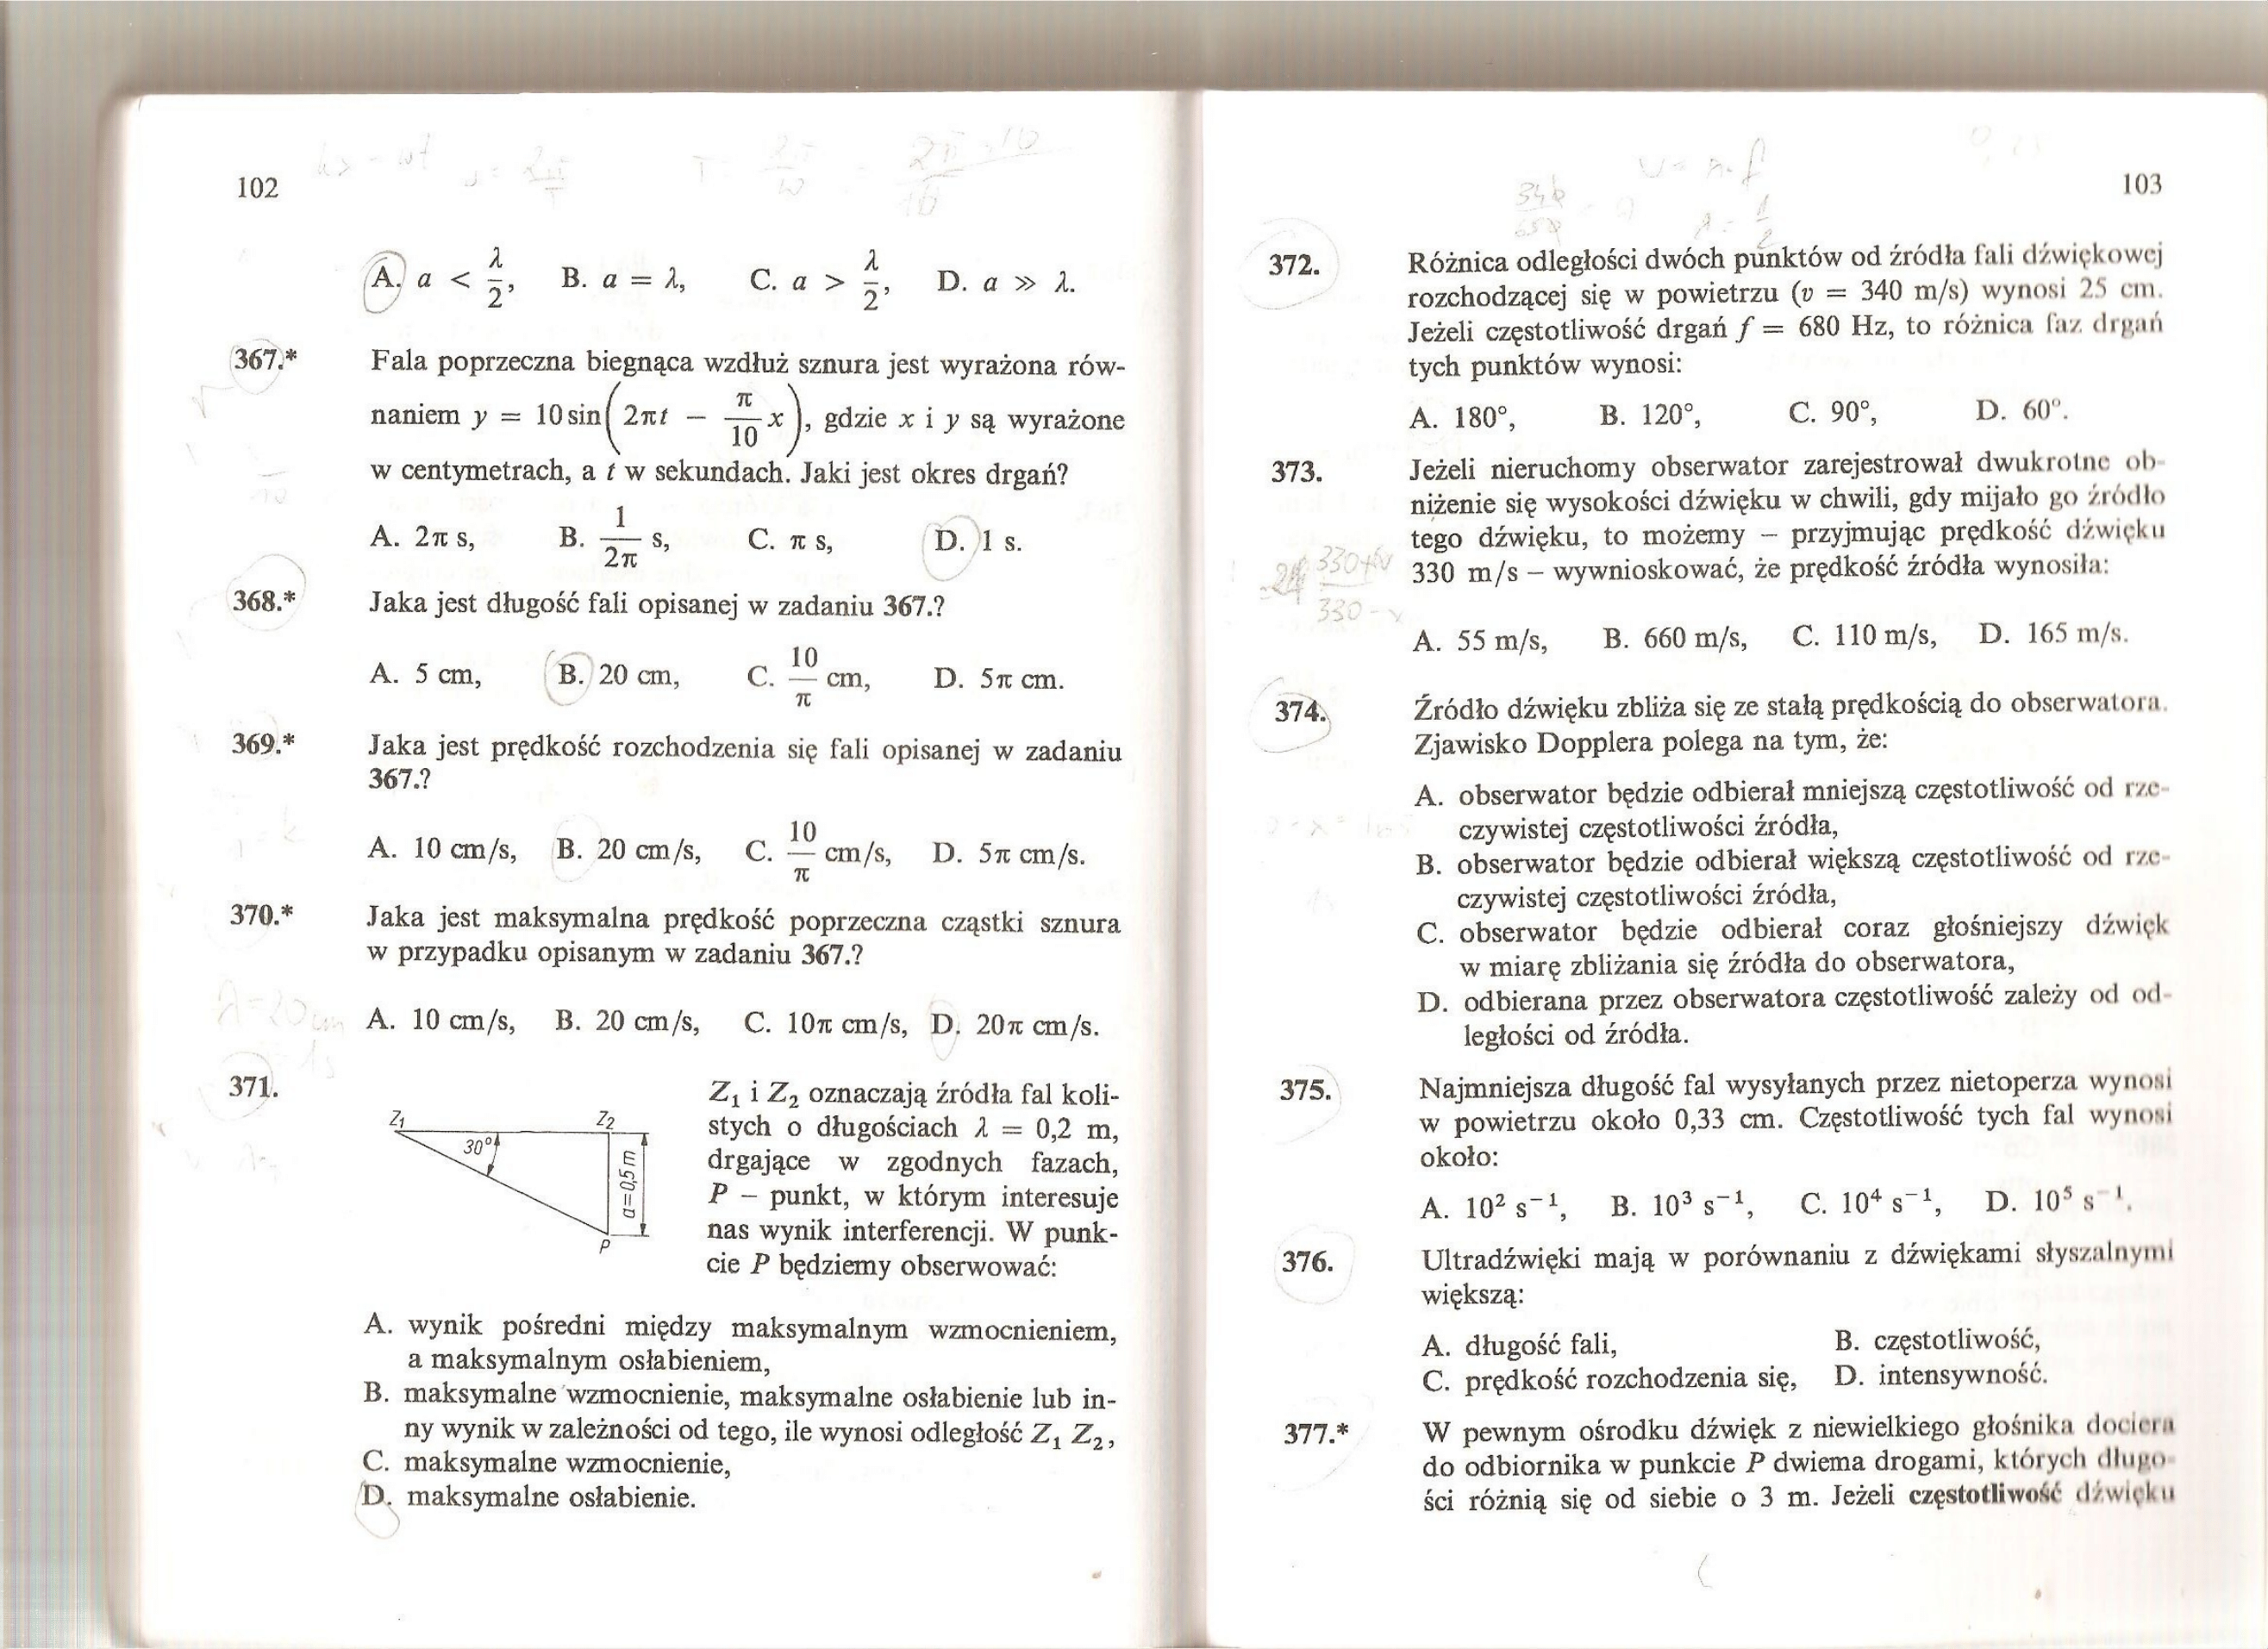 102
A. a < λ/2, B. a = λ, C. a > λ/2, D. a ≫ λ.
367.* Fala poprzeczna biegnąca wzdłuż sznura jest wyrażona rów-
naniem y = 10 sin(2πt − π/10 x), gdzie x i y są wyrażone
w centymetrach, a t w sekundach. Jaki jest okres drgań?
A. 2π s, B. 1/2π s, C. π s, D. 1 s.
368.* Jaka jest długość fali opisanej w zadaniu 367.?
A. 5 cm, B. 20 cm, C. 10/π cm, D. 5π cm.
369.* Jaka jest prędkość rozchodzenia się fali opisanej w zadaniu
367.?
A. 10 cm/s, B. 20 cm/s, C. 10/π cm/s, D. 5π cm/s.
370.* Jaka jest maksymalna prędkość poprzeczna cząstki sznura
w przypadku opisanym w zadaniu 367.?
A. 10 cm/s, B. 20 cm/s, C. 10π cm/s, D. 20π cm/s.
371.
Z1 Z2
30°
a=0,5m
P
Z₁ i Z₂ oznaczają źródła fal koli-
stych o długościach λ = 0,2 m,
drgające w zgodnych fazach,
P – punkt, w którym interesuje
nas wynik interferencji. W punk-
cie P będziemy obserwować:
A. wynik pośredni między maksymalnym wzmocnieniem,
a maksymalnym osłabieniem,
B. maksymalne wzmocnienie, maksymalne osłabienie lub in-
ny wynik w zależności od tego, ile wynosi odległość Z₁ Z₂,
C. maksymalne wzmocnienie,
D. maksymalne osłabienie.
103
372. Różnica odległości dwóch punktów od źródła fali dźwiękowej
rozchodzącej się w powietrzu (v = 340 m/s) wynosi 25 cm.
Jeżeli częstotliwość drgań f = 680 Hz, to różnica faz drgań
tych punktów wynosi:
A. 180°, B. 120°, C. 90°, D. 60°.
373. Jeżeli nieruchomy obserwator zarejestrował dwukrotne ob-
niżenie się wysokości dźwięku w chwili, gdy mijało go źródło
tego dźwięku, to możemy – przyjmując prędkość dźwięku
330 m/s – wywnioskować, że prędkość źródła wynosiła:
A. 55 m/s, B. 660 m/s, C. 110 m/s, D. 165 m/s.
374. Źródło dźwięku zbliża się ze stałą prędkością do obserwatora.
Zjawisko Dopplera polega na tym, że:
A. obserwator będzie odbierał mniejszą częstotliwość od rze-
czywistej częstotliwości źródła,
B. obserwator będzie odbierał większą częstotliwość od rze-
czywistej częstotliwości źródła,
C. obserwator będzie odbierał coraz głośniejszy dźwięk
w miarę zbliżania się źródła do obserwatora,
D. odbierana przez obserwatora częstotliwość zależy od od-
ległości od źródła.
375. Najmniejsza długość fal wysyłanych przez nietoperza wynosi
w powietrzu około 0,33 cm. Częstotliwość tych fal wynosi
około:
A. 10² s⁻¹, B. 10³ s⁻¹, C. 10⁴ s⁻¹, D. 10⁵ s⁻¹.
376. Ultradźwięki mają w porównaniu z dźwiękami słyszalnymi
większą:
A. długość fali, B. częstotliwość,
C. prędkość rozchodzenia się, D. intensywność.
377.* W pewnym ośrodku dźwięk z niewielkiego głośnika dociera
do odbiornika w punkcie P dwiema drogami, których długo-
ści różnią się od siebie o 3 m. Jeżeli częstotliwość dźwięku